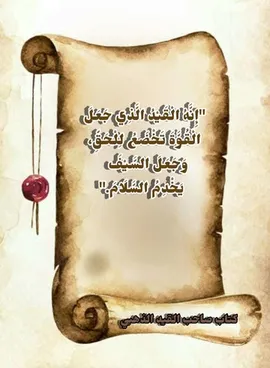 "إِنَّهُ الْقَيْدُ الَّذِي جَعَلَ
الْقُوَّةَ تَخْضَعُ لِلْحَقِّ،
وَجَعَلَ السَّيْفَ
يَخْدِمُ السَّلَامَ."
كتاب صاحب القيد الذهبي